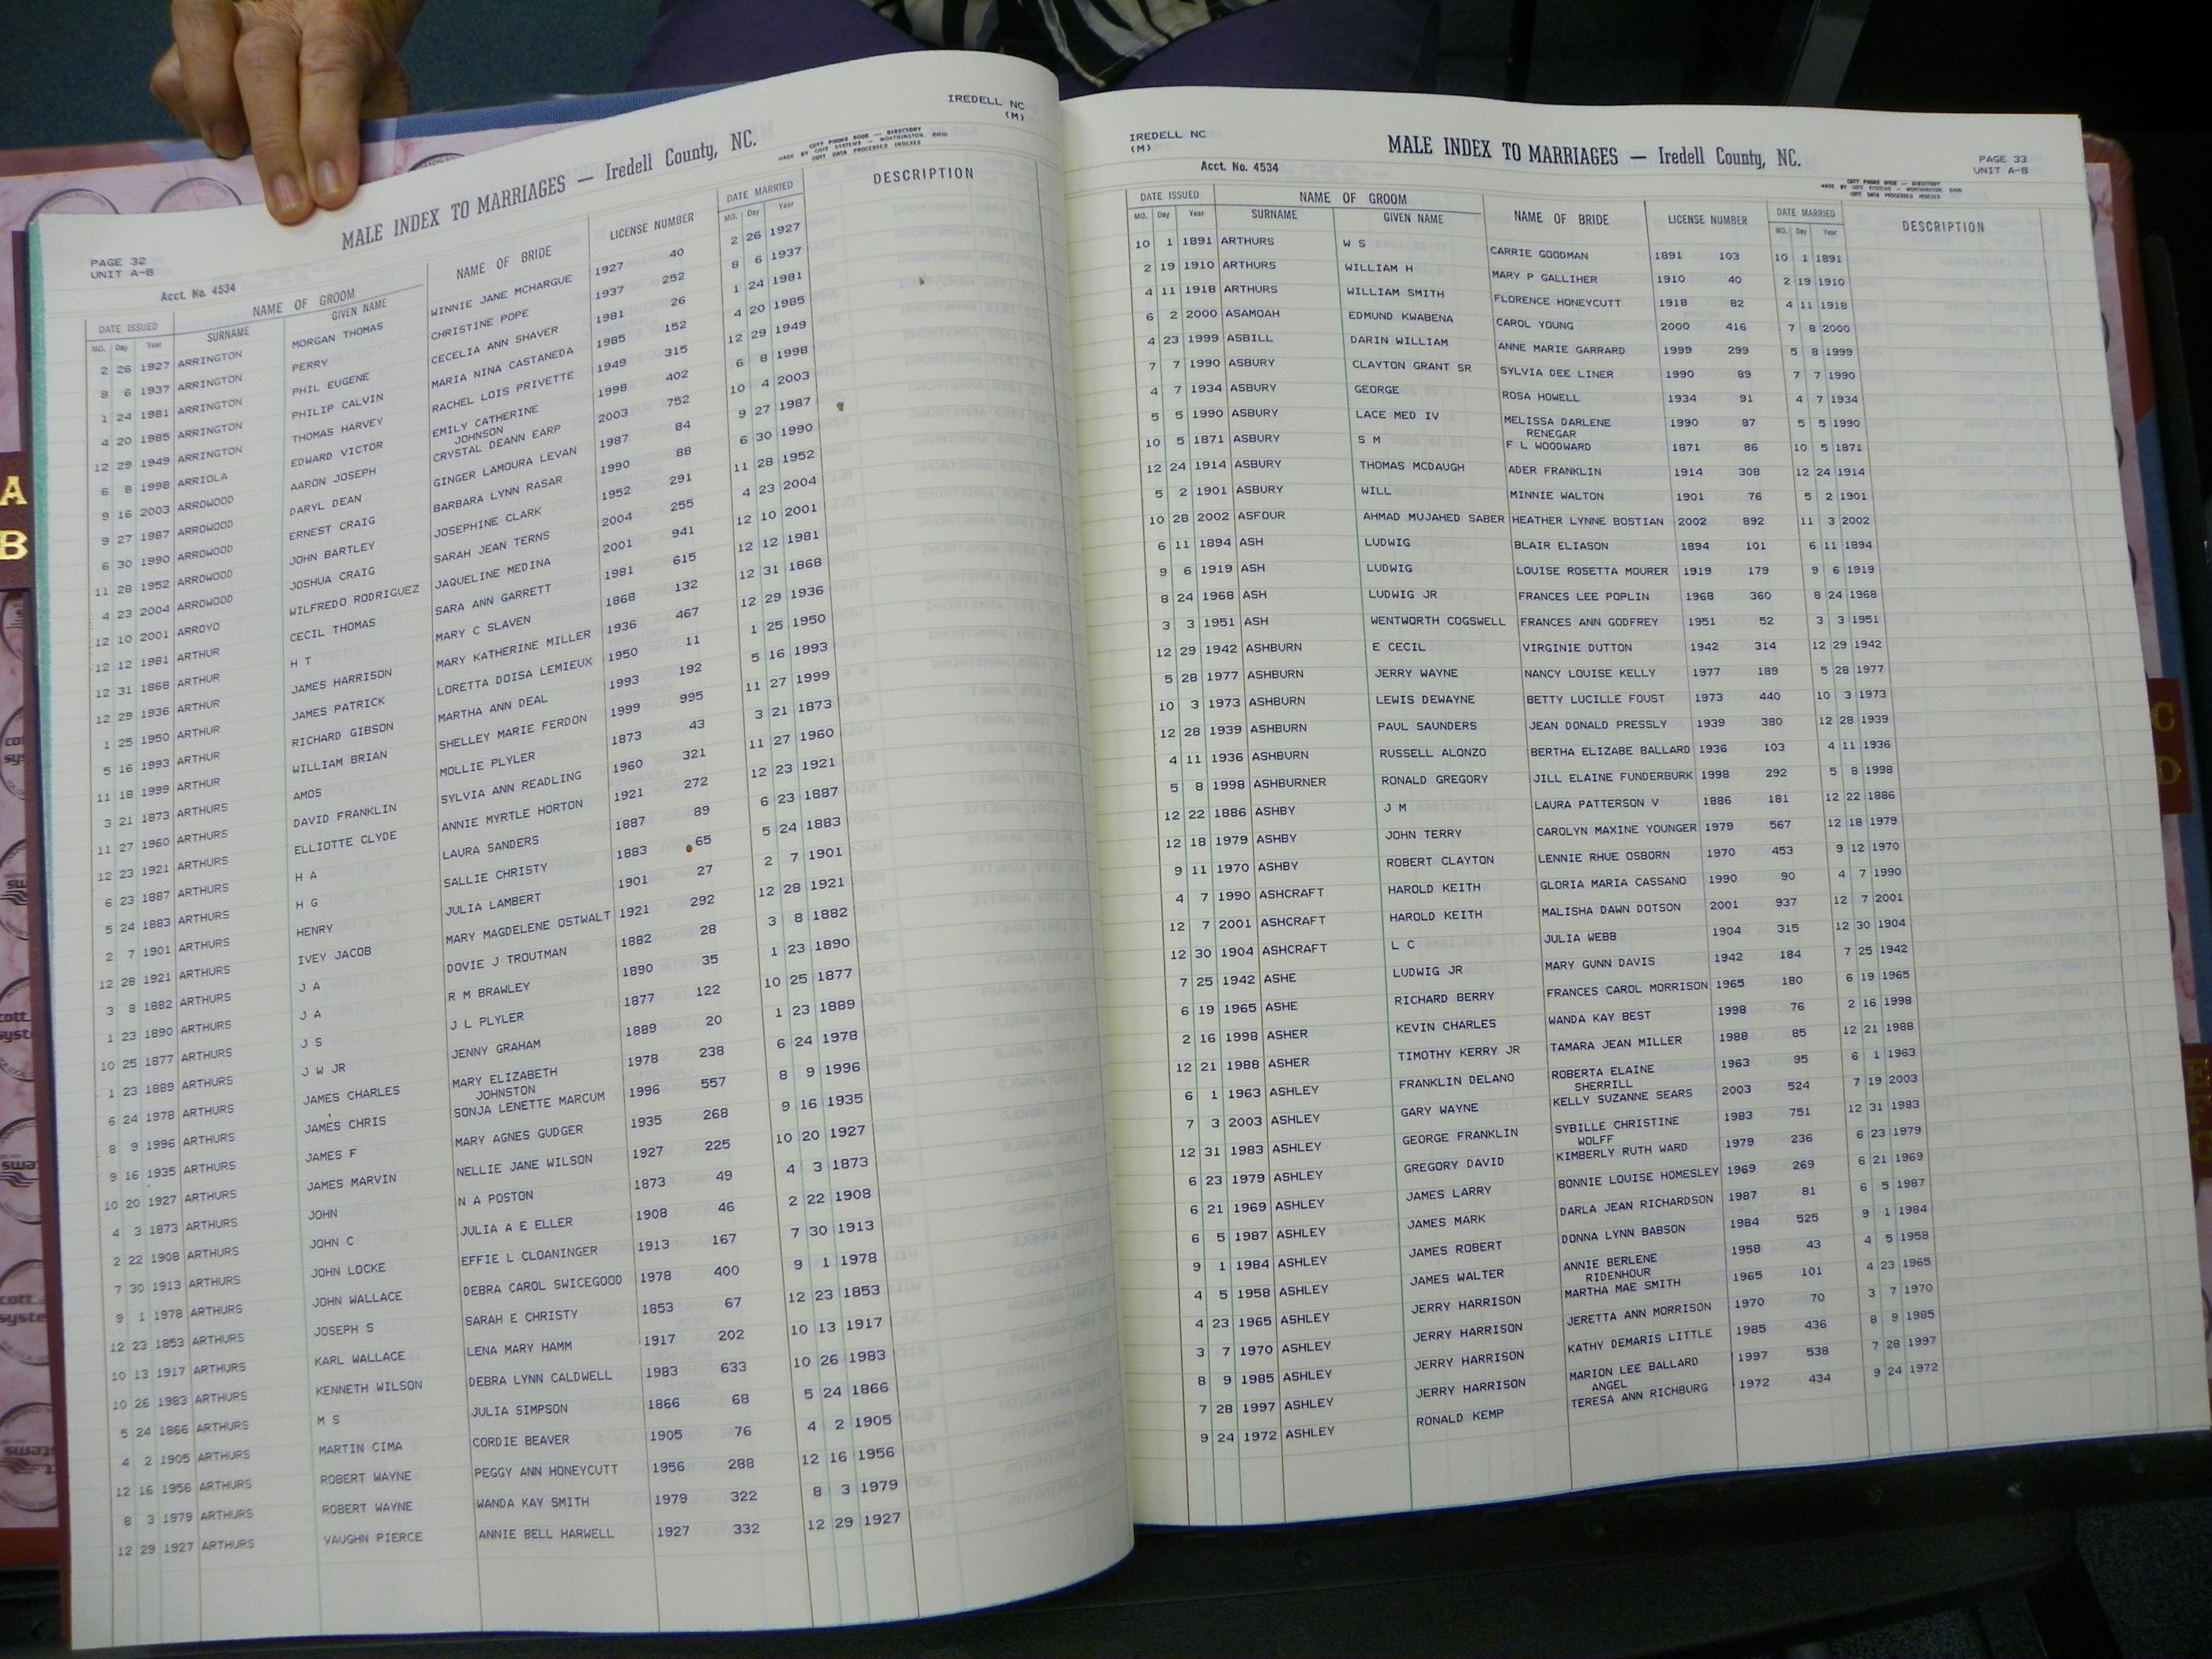 IREDELL NC
(M)
MALE INDEX TO MARRIAGES — Iredell County, NC.
COTT PHONE BOOK — DIRECTORY
MADE BY COTT SYSTEMS — WORTHINGTON, OHIO
COTT DATA PROCESSED INDEXES
PAGE 32
UNIT A-B
Acct. No. 4534
DATE ISSUED NAME OF GROOM NAME OF BRIDE LICENSE NUMBER DATE MARRIED DESCRIPTION
MO. Day Year SURNAME GIVEN NAME MO. Day Year
2 26 1927 ARRINGTON MORGAN THOMAS WINNIE JANE MCHARGUE 1927 40 2 26 1927
8 6 1937 ARRINGTON PERRY CHRISTINE POPE 1937 252 8 6 1937
1 24 1981 ARRINGTON PHIL EUGENE CECELIA ANN SHAVER 1981 26 1 24 1981
4 20 1985 ARRINGTON PHILIP CALVIN MARIA NINA CASTANEDA 1985 152 4 20 1985
12 29 1949 ARRINGTON THOMAS HARVEY RACHEL LOIS PRIVETTE 1949 315 12 29 1949
6 8 1998 ARRIOLA EDWARD VICTOR EMILY CATHERINE 1998 402 6 8 1998
JOHNSON
9 16 2003 ARROWOOD AARON JOSEPH CRYSTAL DEANN EARP 2003 752 10 4 2003
9 27 1987 ARROWOOD DARYL DEAN GINGER LAMOURA LEVAN 1987 84 9 27 1987
6 30 1990 ARROWOOD ERNEST CRAIG BARBARA LYNN RASAR 1990 88 6 30 1990
11 28 1952 ARROWOOD JOHN BARTLEY JOSEPHINE CLARK 1952 291 11 28 1952
4 23 2004 ARROWOOD JOSHUA CRAIG SARAH JEAN TERNS 2004 255 4 23 2004
12 10 2001 ARROYO WILFREDO RODRIGUEZ JAQUELINE MEDINA 2001 941 12 10 2001
12 12 1981 ARTHUR CECIL THOMAS SARA ANN GARRETT 1981 615 12 12 1981
12 31 1868 ARTHUR H T MARY C SLAVEN 1868 132 12 31 1868
12 29 1936 ARTHUR JAMES HARRISON MARY KATHERINE MILLER 1936 467 12 29 1936
1 25 1950 ARTHUR JAMES PATRICK LORETTA DOISA LEMIEUX 1950 11 1 25 1950
5 16 1993 ARTHUR RICHARD GIBSON MARTHA ANN DEAL 1993 192 5 16 1993
11 18 1999 ARTHUR WILLIAM BRIAN SHELLEY MARIE FERDON 1999 995 11 27 1999
3 21 1873 ARTHURS AMOS MOLLIE PLYLER 1873 43 3 21 1873
11 27 1960 ARTHURS DAVID FRANKLIN SYLVIA ANN READLING 1960 321 11 27 1960
12 23 1921 ARTHURS ELLIOTTE CLYDE ANNIE MYRTLE HORTON 1921 272 12 23 1921
6 23 1887 ARTHURS H A LAURA SANDERS 1887 89 6 23 1887
5 24 1883 ARTHURS H G SALLIE CHRISTY 1883 65 5 24 1883
2 7 1901 ARTHURS HENRY JULIA LAMBERT 1901 27 2 7 1901
12 28 1921 ARTHURS IVEY JACOB MARY MAGDELENE OSTWALT 1921 292 12 28 1921
3 8 1882 ARTHURS J A DOVIE J TROUTMAN 1882 28 3 8 1882
1 23 1890 ARTHURS J A R M BRAWLEY 1890 35 1 23 1890
10 25 1877 ARTHURS J S J L PLYLER 1877 122 10 25 1877
1 23 1889 ARTHURS J W JR JENNY GRAHAM 1889 20 1 23 1889
6 24 1978 ARTHURS JAMES CHARLES MARY ELIZABETH 1978 238 6 24 1978
JOHNSTON
8 9 1996 ARTHURS JAMES CHRIS SONJA LENETTE MARCUM 1996 557 8 9 1996
9 16 1935 ARTHURS JAMES F MARY AGNES GUDGER 1935 268 9 16 1935
10 20 1927 ARTHURS JAMES MARVIN NELLIE JANE WILSON 1927 225 10 20 1927
4 3 1873 ARTHURS JOHN N A POSTON 1873 49 4 3 1873
2 22 1908 ARTHURS JOHN C JULIA A E ELLER 1908 46 2 22 1908
7 30 1913 ARTHURS JOHN LOCKE EFFIE L CLOANINGER 1913 167 7 30 1913
9 1 1978 ARTHURS JOHN WALLACE DEBRA CAROL SWICEGOOD 1978 400 9 1 1978
12 23 1853 ARTHURS JOSEPH S SARAH E CHRISTY 1853 67 12 23 1853
10 13 1917 ARTHURS KARL WALLACE LENA MARY HAMM 1917 202 10 13 1917
10 26 1983 ARTHURS KENNETH WILSON DEBRA LYNN CALDWELL 1983 633 10 26 1983
5 24 1866 ARTHURS M S JULIA SIMPSON 1866 68 5 24 1866
4 2 1905 ARTHURS MARTIN CIMA CORDIE BEAVER 1905 76 4 2 1905
12 16 1956 ARTHURS ROBERT WAYNE PEGGY ANN HONEYCUTT 1956 288 12 16 1956
8 3 1979 ARTHURS ROBERT WAYNE WANDA KAY SMITH 1979 322 8 3 1979
12 29 1927 ARTHURS VAUGHN PIERCE ANNIE BELL HARWELL 1927 332 12 29 1927
IREDELL NC
(M)
MALE INDEX TO MARRIAGES — Iredell County, NC.
PAGE 33
UNIT A-B
Acct. No. 4534
COTT PHONE BOOK — DIRECTORY
MADE BY COTT SYSTEMS — WORTHINGTON OHIO
COTT DATA PROCESSED INDEXES
DATE ISSUED NAME OF GROOM NAME OF BRIDE LICENSE NUMBER DATE MARRIED DESCRIPTION
MO. Day Year SURNAME GIVEN NAME MO. Day Year
10 1 1891 ARTHURS W S CARRIE GOODMAN 1891 103 10 1 1891
2 19 1910 ARTHURS WILLIAM H MARY P GALLIHER 1910 40 2 19 1910
4 11 1918 ARTHURS WILLIAM SMITH FLORENCE HONEYCUTT 1918 82 4 11 1918
6 2 2000 ASAMOAH EDMUND KWABENA CAROL YOUNG 2000 416 7 8 2000
4 23 1999 ASBILL DARIN WILLIAM ANNE MARIE GARRARD 1999 299 5 8 1999
7 7 1990 ASBURY CLAYTON GRANT SR SYLVIA DEE LINER 1990 89 7 7 1990
4 7 1934 ASBURY GEORGE ROSA HOWELL 1934 91 4 7 1934
5 5 1990 ASBURY LACE MED IV MELISSA DARLENE 1990 87 5 5 1990
RENEGAR
10 5 1871 ASBURY S M F L WOODWARD 1871 86 10 5 1871
12 24 1914 ASBURY THOMAS MCDAUGH ADER FRANKLIN 1914 308 12 24 1914
5 2 1901 ASBURY WILL MINNIE WALTON 1901 76 5 2 1901
10 28 2002 ASFOUR AHMAD MUJAHED SABER HEATHER LYNNE BOSTIAN 2002 892 11 3 2002
6 11 1894 ASH LUDWIG BLAIR ELIASON 1894 101 6 11 1894
9 6 1919 ASH LUDWIG LOUISE ROSETTA MOURER 1919 179 9 6 1919
8 24 1968 ASH LUDWIG JR FRANCES LEE POPLIN 1968 360 8 24 1968
3 3 1951 ASH WENTWORTH COGSWELL FRANCES ANN GODFREY 1951 52 3 3 1951
12 29 1942 ASHBURN E CECIL VIRGINIE DUTTON 1942 314 12 29 1942
5 28 1977 ASHBURN JERRY WAYNE NANCY LOUISE KELLY 1977 189 5 28 1977
10 3 1973 ASHBURN LEWIS DEWAYNE BETTY LUCILLE FOUST 1973 440 10 3 1973
12 28 1939 ASHBURN PAUL SAUNDERS JEAN DONALD PRESSLY 1939 380 12 28 1939
4 11 1936 ASHBURN RUSSELL ALONZO BERTHA ELIZABE BALLARD 1936 103 4 11 1936
5 8 1998 ASHBURNER RONALD GREGORY JILL ELAINE FUNDERBURK 1998 292 5 8 1998
12 22 1886 ASHBY J M LAURA PATTERSON V 1886 181 12 22 1886
12 18 1979 ASHBY JOHN TERRY CAROLYN MAXINE YOUNGER 1979 567 12 18 1979
9 11 1970 ASHBY ROBERT CLAYTON LENNIE RHUE OSBORN 1970 453 9 12 1970
4 7 1990 ASHCRAFT HAROLD KEITH GLORIA MARIA CASSANO 1990 90 4 7 1990
12 7 2001 ASHCRAFT HAROLD KEITH MALISHA DAWN DOTSON 2001 937 12 7 2001
12 30 1904 ASHCRAFT L C JULIA WEBB 1904 315 12 30 1904
7 25 1942 ASHE LUDWIG JR MARY GUNN DAVIS 1942 184 7 25 1942
6 19 1965 ASHE RICHARD BERRY FRANCES CAROL MORRISON 1965 180 6 19 1965
2 16 1998 ASHER KEVIN CHARLES WANDA KAY BEST 1998 76 2 16 1998
12 21 1988 ASHER TIMOTHY KERRY JR TAMARA JEAN MILLER 1988 85 12 21 1988
6 1 1963 ASHLEY FRANKLIN DELANO ROBERTA ELAINE 1963 95 6 1 1963
SHERRILL
7 3 2003 ASHLEY GARY WAYNE KELLY SUZANNE SEARS 2003 524 7 19 2003
12 31 1983 ASHLEY GEORGE FRANKLIN SYBILLE CHRISTINE 1983 751 12 31 1983
WOLFF
6 23 1979 ASHLEY GREGORY DAVID KIMBERLY RUTH WARD 1979 236 6 23 1979
6 21 1969 ASHLEY JAMES LARRY BONNIE LOUISE HOMESLEY 1969 269 6 21 1969
6 5 1987 ASHLEY JAMES MARK DARLA JEAN RICHARDSON 1987 81 6 5 1987
9 1 1984 ASHLEY JAMES ROBERT DONNA LYNN BABSON 1984 525 9 1 1984
4 5 1958 ASHLEY JAMES WALTER ANNIE BERLENE 1958 43 4 5 1958
RIDENHOUR
4 23 1965 ASHLEY JERRY HARRISON MARTHA MAE SMITH 1965 101 4 23 1965
3 7 1970 ASHLEY JERRY HARRISON JERETTA ANN MORRISON 1970 70 3 7 1970
8 9 1985 ASHLEY JERRY HARRISON KATHY DEMARIS LITTLE 1985 436 8 9 1985
7 28 1997 ASHLEY JERRY HARRISON MARION LEE BALLARD 1997 538 7 28 1997
ANGEL
9 24 1972 ASHLEY RONALD KEMP TERESA ANN RICHBURG 1972 434 9 24 1972
A
B
C
D